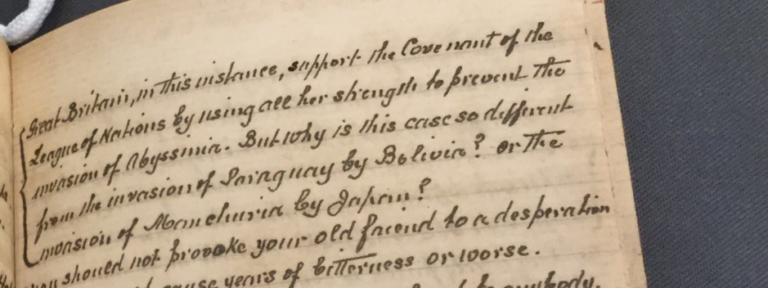 Great Britain, in this instance, support the Covenant of the
League of Nations by using all her strength to prevent the
invasion of Abyssinia. But why is this case so different
from the invasion of Paraguay by Bolivia? or the
invasion of Manchuria by Japan?
you should not provoke your old friend to a desperation
cause years of bitterness or worse.
anybody.